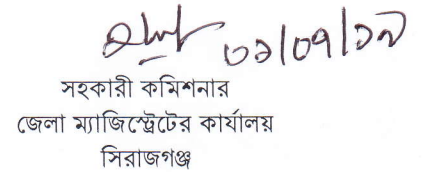 ০১/০৭/১৯
সহকারী কমিশনার
জেলা ম্যাজিস্ট্রেটের কার্যালয়
সিরাজগঞ্জ